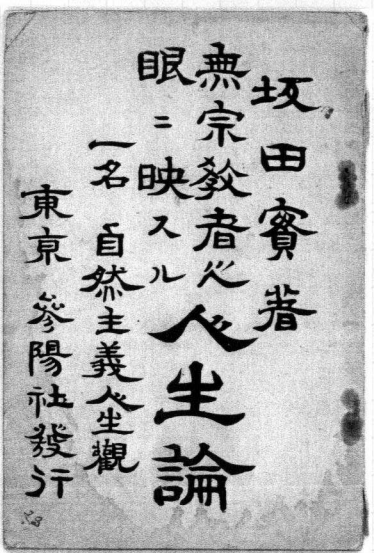 坂田賓著
無宗教者之
眼ニ映スル
人生論
一名 自然主義人生觀
東京 參陽社發行